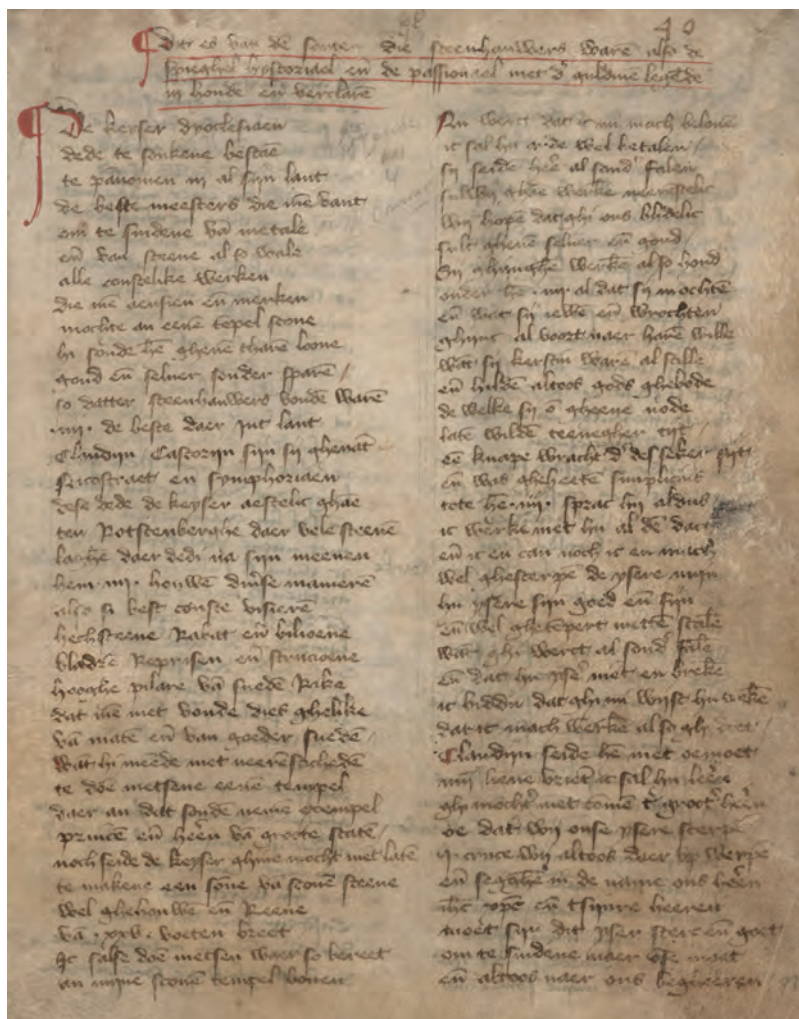 40
Dit es van den santen die steenhauwers waren also de
spieghel hystoriael en̄ de passionael met dʼ guldinē legēde
in houdē en̄ verclarē
De keyser dyoclesiaen
dede te soukene bestaē
te pānonien in al syn lant
de beste meesters die mē vant
om te snidene vā metale
en̄ van steene al so wale
alle constelike werken
die mē aensien en̄ merken
mochte an eenē tēpel scone
hi soude hē ghevē tharē loone
goud en̄ selver sonder sparē
so datter steenhauwers vondē warē
.iiij. de beste daer int lant
Claudijn Castorijn sijn sy ghenāt
Nicostraet en symphoriaen
dese dede de keyser aestelic ghaē
ten Rotstenberghe daer vele steenē
laghē daer dedi na sijn meenen
hem .iiij. houwē divʼse manierē
also si best conste visierē
hechsteene en̄
bladrē Reprisen en̄
hooghe pilare vā snedē Rike
dat mē niet vonde dies ghelike
vā matē en̄ van goeder snedē
wat hi meēde met neerēstichedē
te doē metsene eenē tempel
daer an dat soudē nemē exempel
princē en̄ heerē vā groote statē
noch seide de keyser ghine mocht niet latē
te makene een sōne vā sconē steene
wel ghehouwē en̄ Reene
vā .xxv. voeten breet
Ic salse doē metsen waer so bereet
an mijne sconē tempel boven
En werct dat ic mach
ic sal hu wel betalen
sy seidē heē al sondʼ falen
werkē neerēstelic
wy hopē dat ghi ons blidelic
sult ghevē selver en̄ goud
Sy ghinghē werkē also houd
onder hē .iiij. al dat sy mochtē
en̄ wat sy en̄ wrochten
ghinc al voort naer harē wille
wāt sy kerstin warē al stille
en̄ hildē altoos gods ghebode
de welke sy ō gheene node
latē wildē teenegher tijt
eē knape wracht dʼ des seker sijt
en̄ was gheheetē simplicius
tote hē .iiij. sprac hy aldus
ic werke met hu al dē dach
en̄ ic en can noch ic en mach
wel ghescerpē de ysere mijn
hu ysere sijn goed en̄ fijn
en̄ wel ghetēpert metten stale
wāt ghi werct al sondʼ fale
en̄ dat hu niet en brekē
ic biddu dat ghi mi wyst hu
dat ic mach werkē also ghi doet
Claudijn seide hē met oemoet
mijn lieve vrient ic sal hu leerē
ghi mocht niet comē tʼ grootʼ heerē
oe dat wy onse ysere scerpē
ij cruce wy altoos daer up werpē
en̄ segghē in de name ons heerē
en̄ heeren
moet sijn dit yser sterc en̄ goet
om te snidene naer
en̄ altoos naer ons begheeren